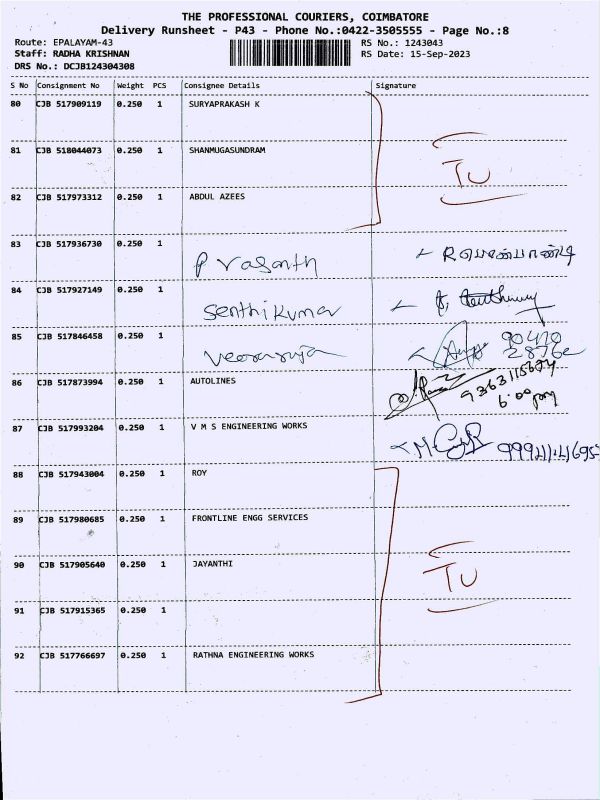 THE PROFESSIONAL COURIERS, COIMBATORE
Delivery Runsheet - P43 - Phone No.:0422-3505555 - Page No.:8
Route: EPALAYAM-43 RS No.: 1243043
Staff: RADHA KRISHNAN RS Date: 15-Sep-2023
DRS No.: DCJB124304308
S No Consignment No Weight PCS Consignee Details Signature
80 CJB 517909119 0.250 1 SURYAPRAKASH K
81 CJB 518044073 0.250 1 SHANMUGASUNDRAM
TU
82 CJB 517973312 0.250 1 ABDUL AZEES
83 CJB 517936730 0.250 1
Prasanth
84 CJB 517927149 0.250 1
Senthikumar
85 CJB 517846458 0.250 1
Veeraraja
86 CJB 517873994 0.250 1 AUTOLINES
6:00pm
87 CJB 517993204 0.250 1 V M S ENGINEERING WORKS
88 CJB 517943004 0.250 1 ROY
89 CJB 517980685 0.250 1 FRONTLINE ENGG SERVICES
90 CJB 517905640 0.250 1 JAYANTHI
TU
91 CJB 517915365 0.250 1
92 CJB 517766697 0.250 1 RATHNA ENGINEERING WORKS